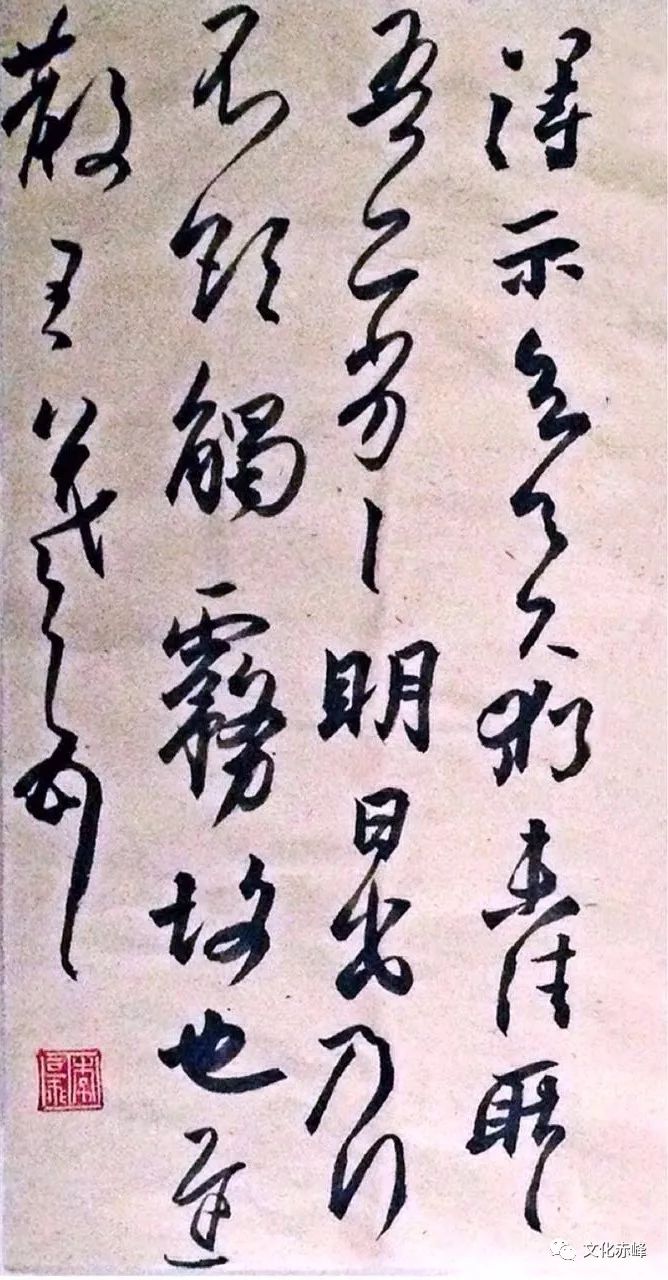 得示知足下猶未佳耿〻
吾亦劣〻明日出乃行
不欲觸霧故也遲
散王羲之頓首
文化赤峰